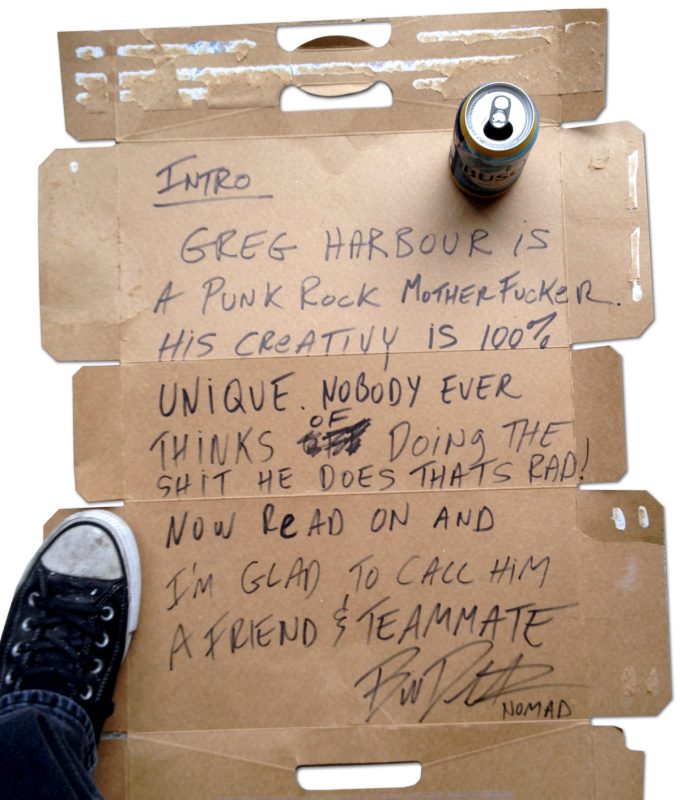 INTRO
GREG HARBOUR is
A PUNK ROCK MOTHERFUCKER.
HiS CREATIVY iS 100%
UNiQUE. NOBODY EVER
THiNKS OF DOiNG THE
SHiT HE DOES THATS RAD!
NOW ReAD ON AND
I'M GLAD TO CALL HiM
A FRiEND & TEAMMATE
NOMAD
BUSC